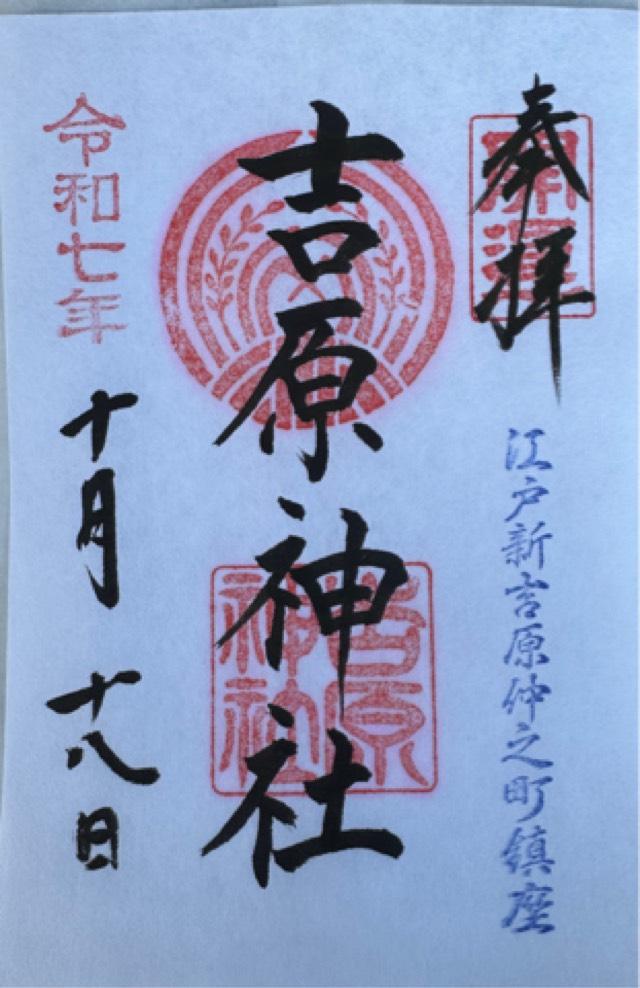 奉拝
開運
江戸新吉原仲之町鎮座
吉原神社
吉原神社
令和七年
十月十八日